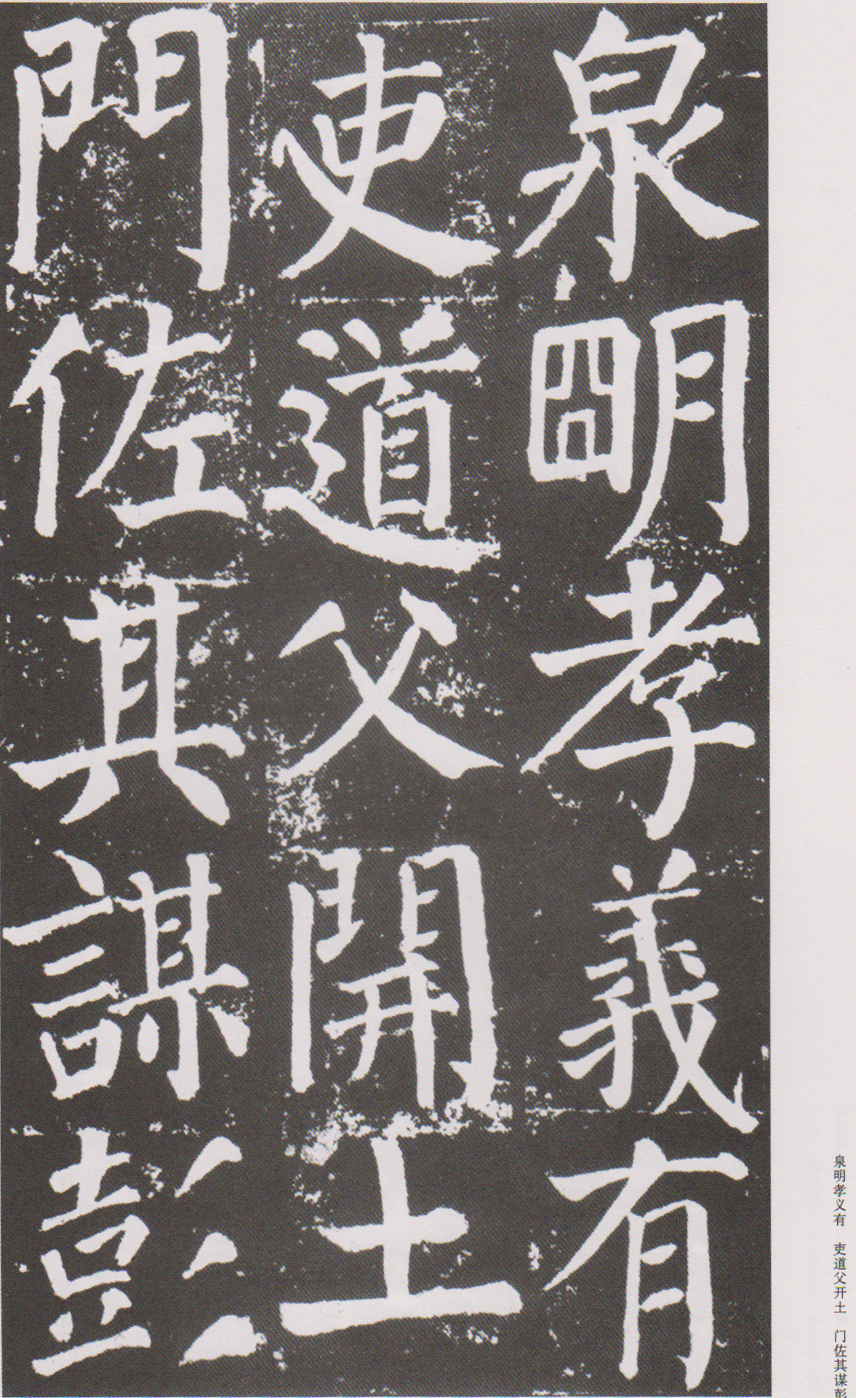 泉明孝義有
吏道父開土
門佐其謀彭
泉明孝义有 吏道父开土 门佐其谋彭